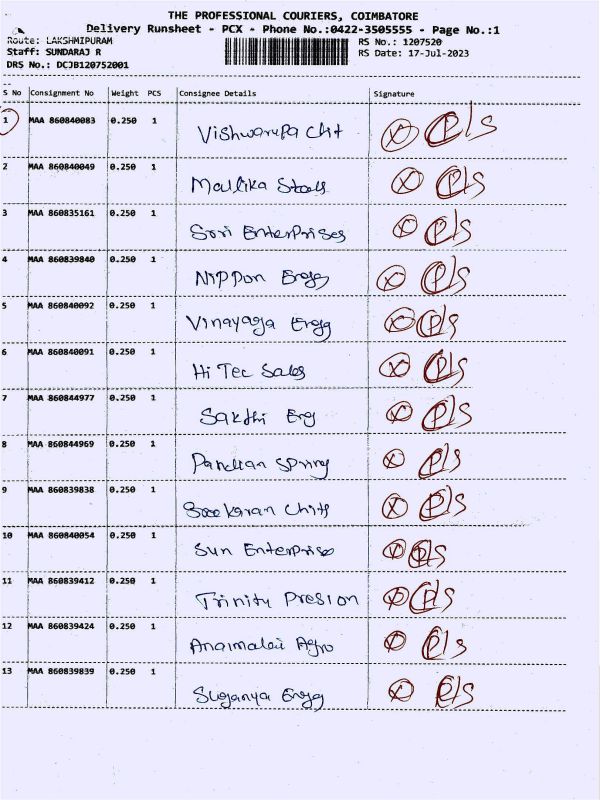 THE PROFESSIONAL COURIERS, COIMBATORE
Delivery Runsheet - PCX - Phone No.:0422-3505555 - Page No.:1
Route: LAKSHMIPURAM RS No.: 1207520
Staff: SUNDARAJ R RS Date: 17-Jul-2023
DRS No.: DCJB120752001
S No Consignment No Weight PCS Consignee Details Signature
1 MAA 860840083 0.250 1 Vishwarupa Chit
2 MAA 860840049 0.250 1 Mallika
3 MAA 860835161 0.250 1 Sori Enterprises
4 MAA 860839840 0.250 1 Nippon Engg
5 MAA 860840092 0.250 1 Vinayaga Engg
6 MAA 860840091 0.250 1 Hi Tec Sales
7 MAA 860844977 0.250 1 Sakthi Eng
8 MAA 860844969 0.250 1 Pandian Spring
9 MAA 860839838 0.250 1 Chits
10 MAA 860840054 0.250 1 Sun Enterprises
11 MAA 860839412 0.250 1 Trinity Presion
12 MAA 860839424 0.250 1 Anaimalai Agro
13 MAA 860839839 0.250 1 Suganya Engg